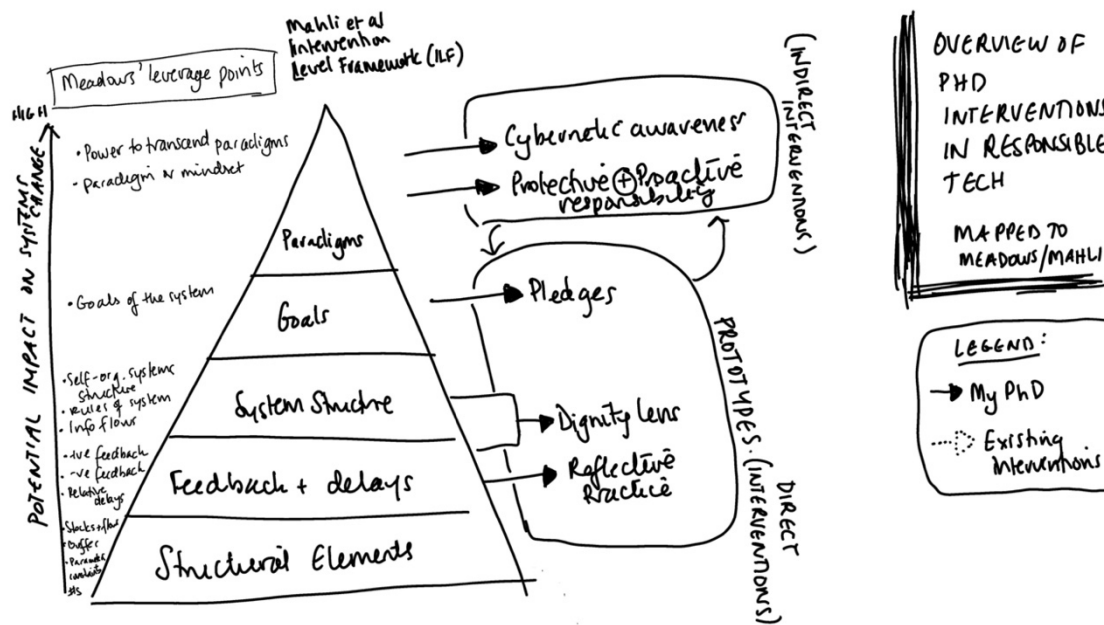 Mahli et al
Intervention
Level Framework (ILF)
Meadows' leverage points
HIGH
POTENTIAL IMPACT ON SYSTEMS CHANGE
• Power to transcend paradigms
• Paradigm or mindset
• Goals of the system
• Self-org. systems
structure
• rules of system
• Info flows
• +ve feedback
• -ve feedback
• Relative
delays
• Stocks + flows
• Buffer
#s
Paradigms
Goals
System Structre
Feedback + delays
Structural Elements
Cybernetic awareness
Protective + Proactive
responsibility
(INDIRECT
INTERVENTIONS)
Pledges
Dignity lens
Reflective
Practice
PROTOTYPES. (DIRECT
INTERVENTIONS)
OVERVIEW OF
PHD
INTERVENTIONS
IN RESPONSIBLE
TECH
MAPPED TO
MEADOWS/MAHLI
LEGEND:
My PhD
Existing
interventions